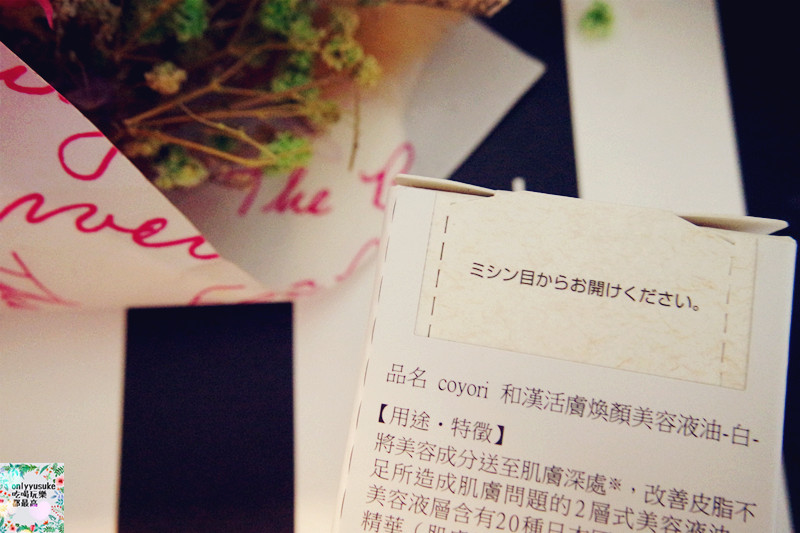 The
ミシン目からお開けください。
品名 coyori 和漢活膚煥顏美容液油-白-
【用途・特徵】
將美容成分送至肌膚深處※，改善皮脂不
足所造成肌膚問題的2層式美容液油
美容液層含有20種日本
精華（肌
onlyyusuke
吃喝玩樂
都最高